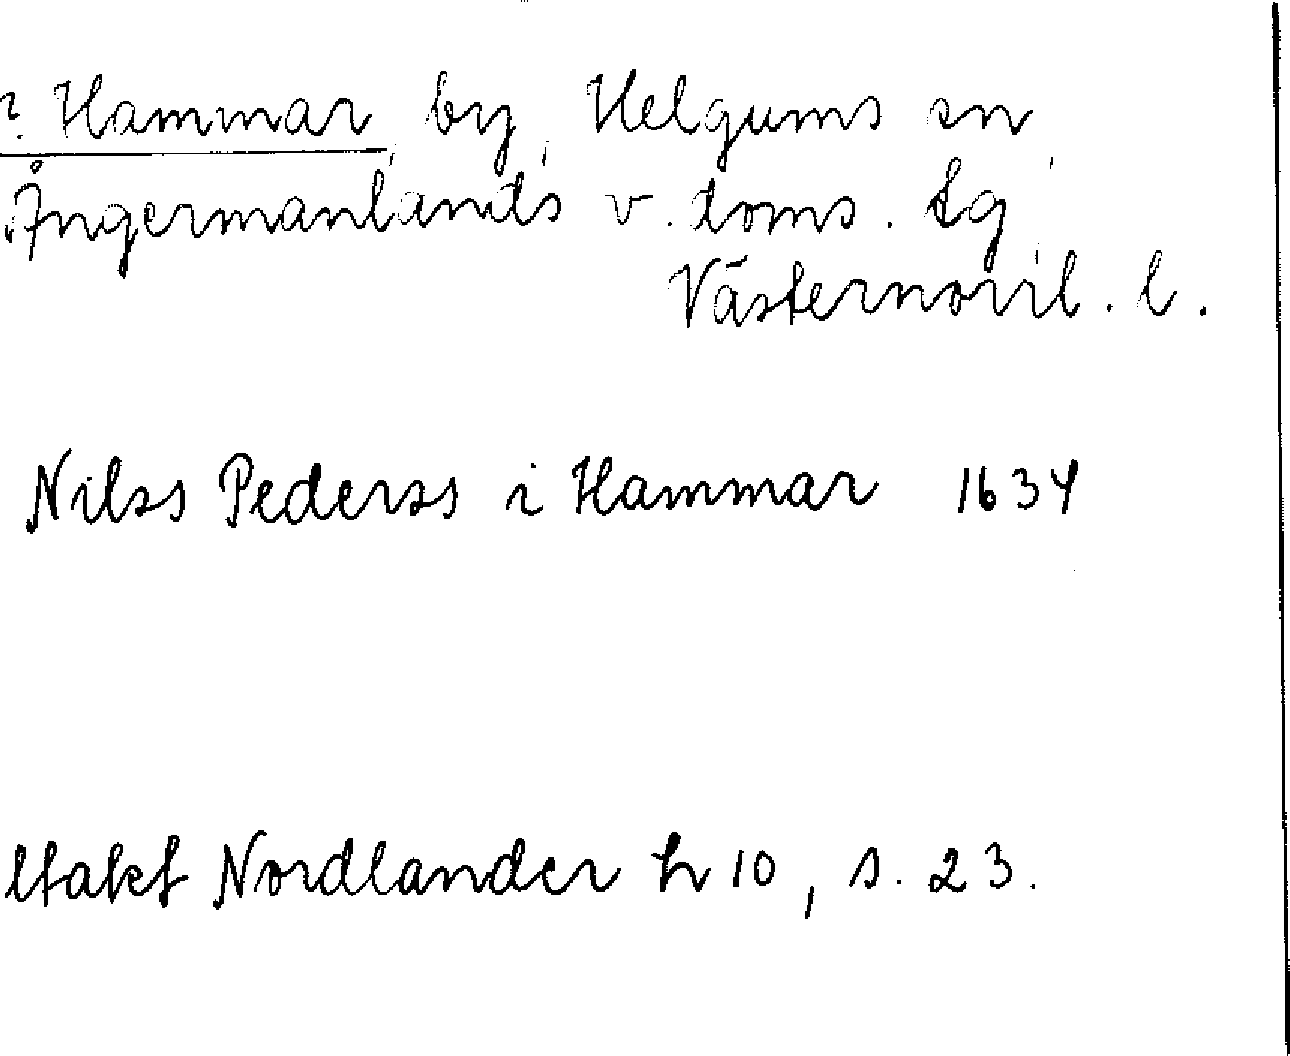 ? Hammar, by, Helgums sn,
Ångermanlands v. doms. tg,
Västernorrl. l.
Nilss Pederss i Hammar 1634
Nordlander h 10, s. 23.